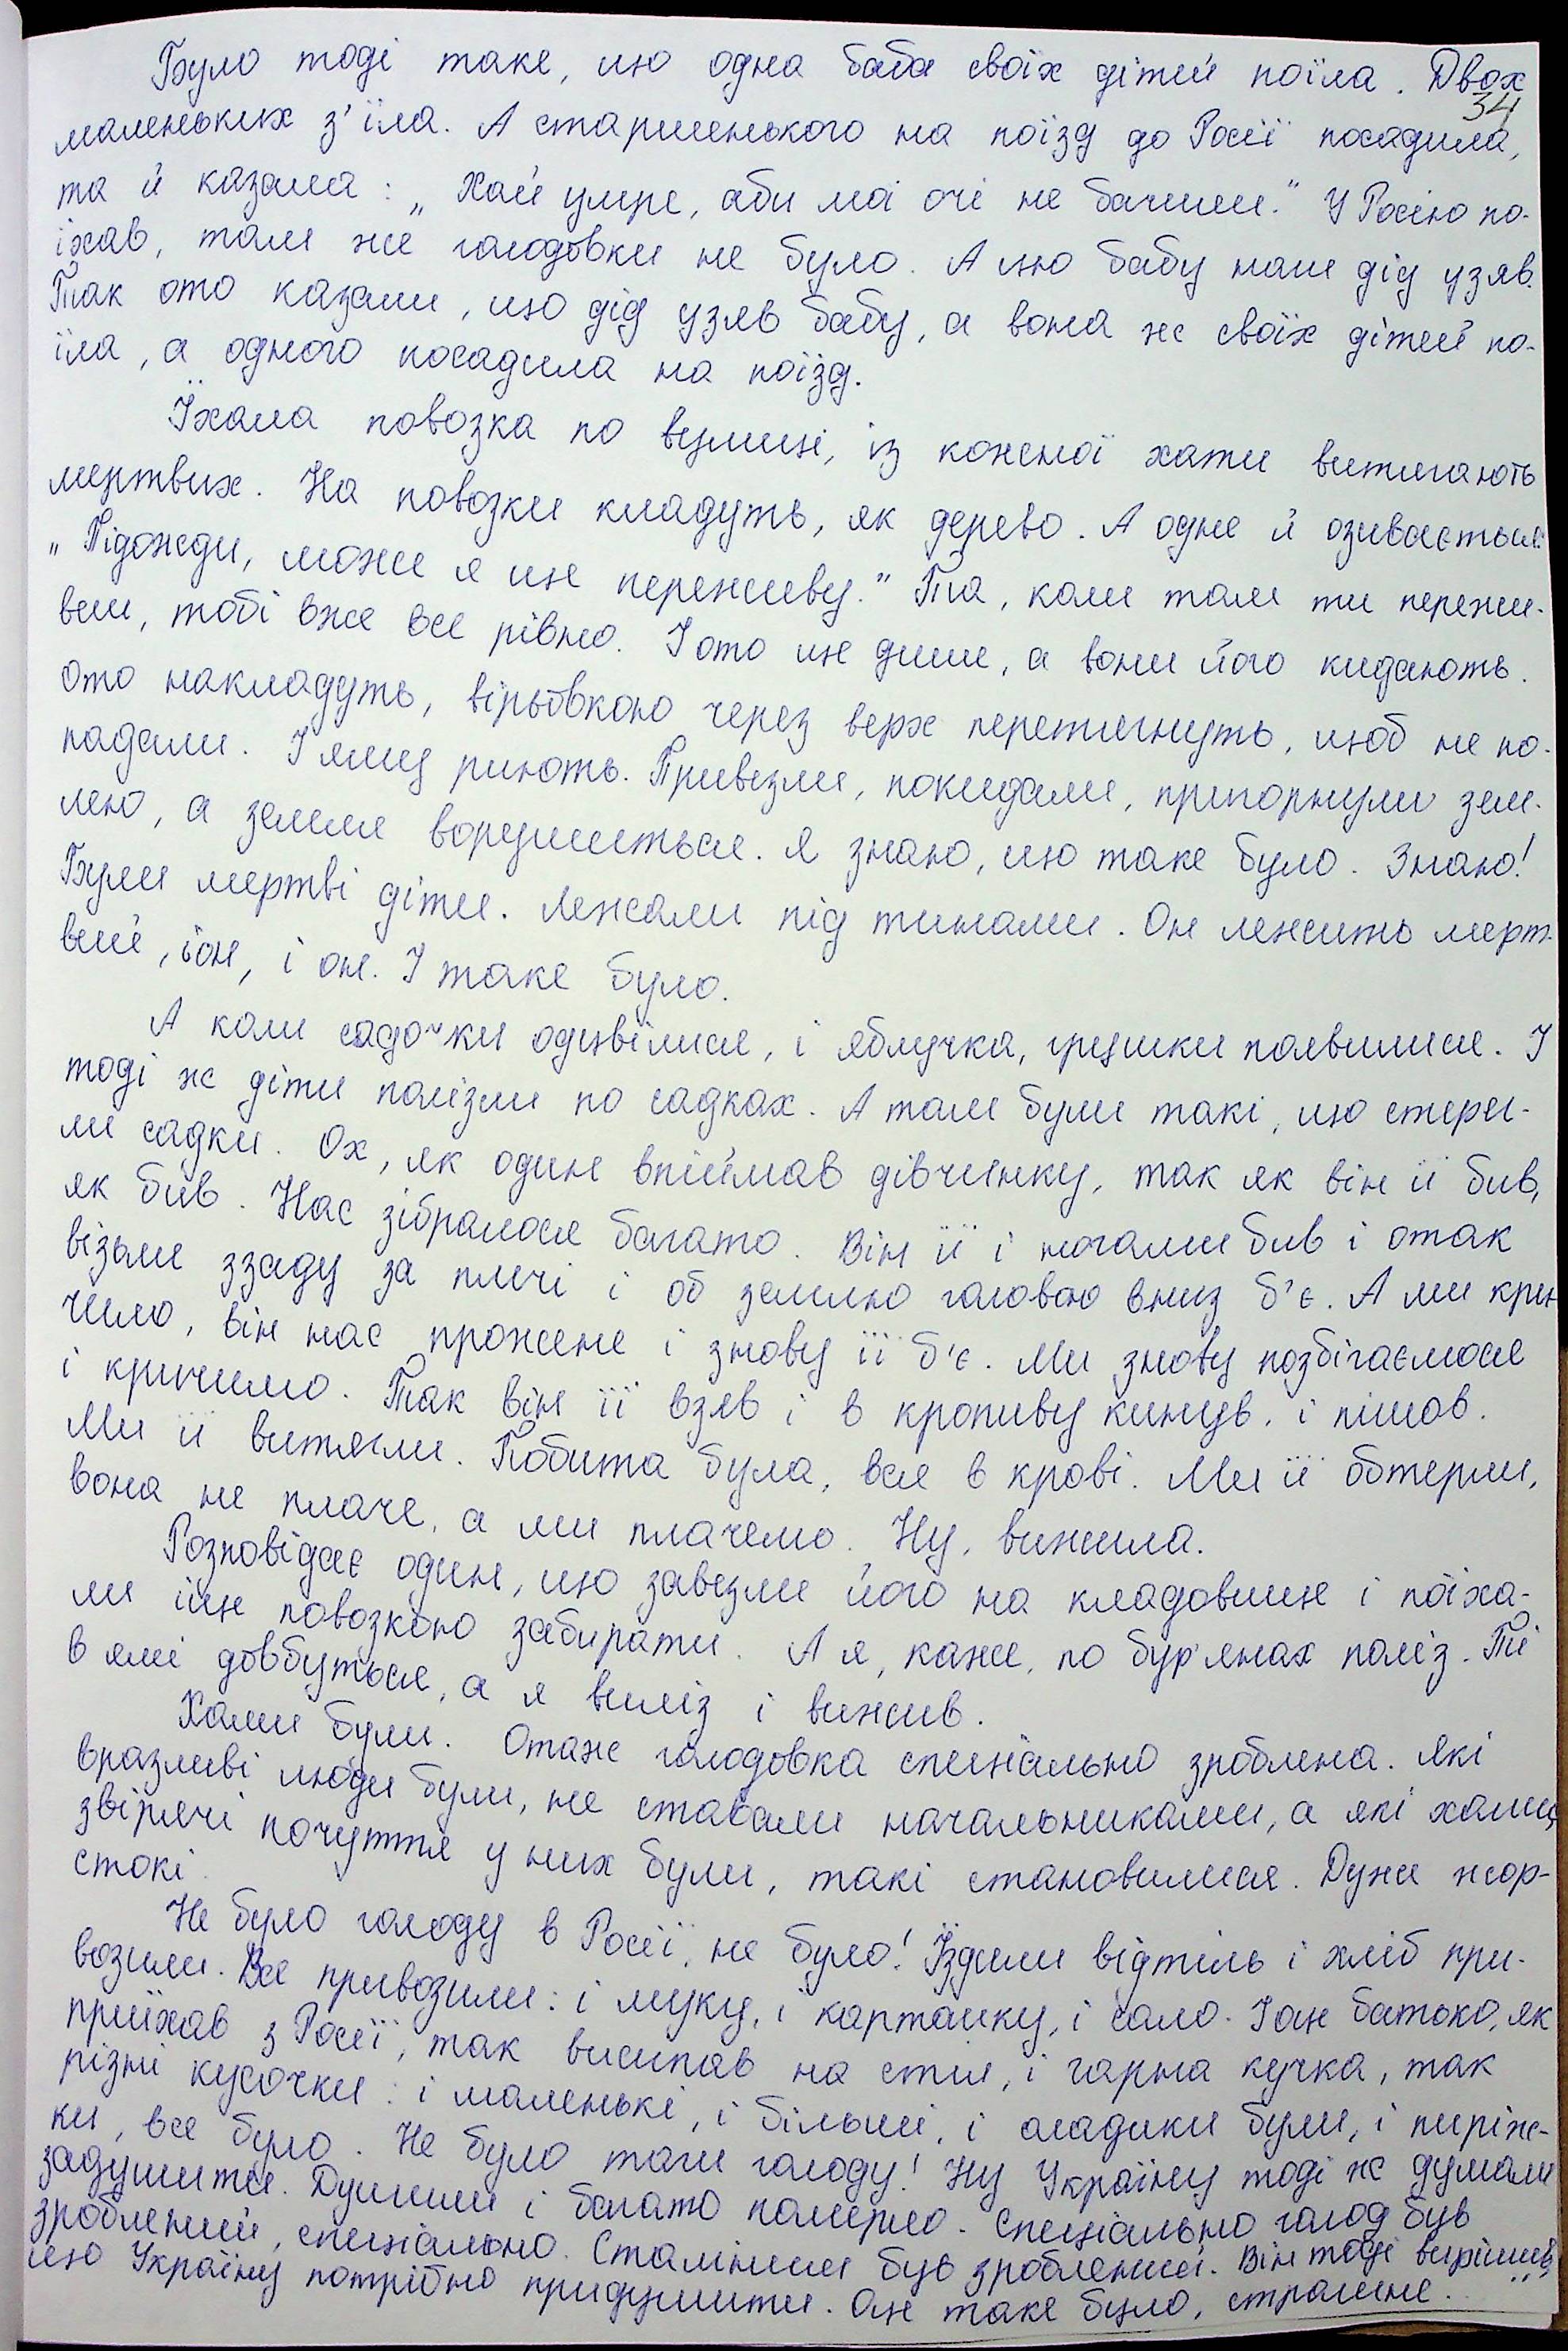 Було тоді таке, що одна баба своїх дітей поїла. Двох
34
маленьких з'їла. А старшенького на поїзд до Росії посадила,
та й казала: „Хай умре, аби мої очі не бачили." У Росію по-
їхав, там же голодовки не було. А цю бабу наш дід узяв.
Так ото казали, що дід узяв бабу, а вона ж своїх дітей по-
їла, а одного посадила на поїзд.
Їхала повозка по вулиці, із кожної хати витягають
мертвих. На повозки кладуть, як дерево. А одне й озивається:
„Підожди, може я ще переживу." Та, коли там ти пережи-
веш, тобі вже все рівно. І ото ще дише, а вони його кидають.
Ото накладуть, вірьовкою через верх перетягнуть, щоб не по-
падали. І яму риють. Привезли, покидали, пригорнули зем-
лею, а земля ворушиться. Я знаю, що таке було. Знаю!
Були мертві діти. Лежали під тинами. Он лежить мерт-
вий, і он, і он. І таке було.
А коли садочки одцвілися, і яблучка, грушки появилися. І
тоді ж діти полізли по садках. А там були такі, що стерег-
ли садки. Ох, як один впіймав дівчинку, так як він її бив,
як бив. Нас зібралося багато. Він її і ногами бив і отак
візьме ззаду за плечі і об землю головою вниз б'є. А ми кри-
чимо, він нас прожене і знову її б'є. Ми знову позбігаємося
і кричимо. Так він її взяв і в кропиву кинув, і пішов.
Ми її витягли. Побита була, вся в крові. Ми її обтерли,
вона не плаче, а ми плачемо. Ну, вижила.
Розповідає один, що завезли його на кладовище і поїха-
ли іще повозкою забирати. А я, каже, по бур'янах поліз. Ті
в ямі довбуться, а я виліз і вижив.
Хами були. Отаже голодовка спеціально зроблена. Які
вразливі люди були, не ставали начальниками, а які хами,
звірячі почуття у них були, такі становилися. Дуже жор-
стокі.
Не було голоду в Росії, не було! Їздили відтіль і хліб при-
возили. Все привозили: і муку, і картошку, і сало. І он батько, як
приїхав з Росії, так висипав на стіл, і гарна кучка, так
різні кусочки: і маленькі, і більші, і оладики були, і пиріж-
ки, все було. Не було там голоду! Ну Україну тоді ж думали
задушити. Душили і багато померло. Спеціально голод був
зроблений, спеціально. Сталіним був зроблений. Він тоді вирішив,
що Україну потрібно придушити. Оце таке було, страшне.